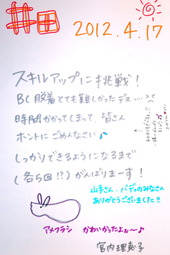 井田
2012.4.17
スキルアップに挑戦!
BC脱着とても難しかったデス……って
時間がかかってしまって、皆さん
ホントにごめんなさい
しっかりできるようになるまで
(各5回!?)がんばりまーす!
山本さん、バディのみなさん
ありがとうございました!!
アメフラシ かわいかったよぉ〜♪
宮内理恵子